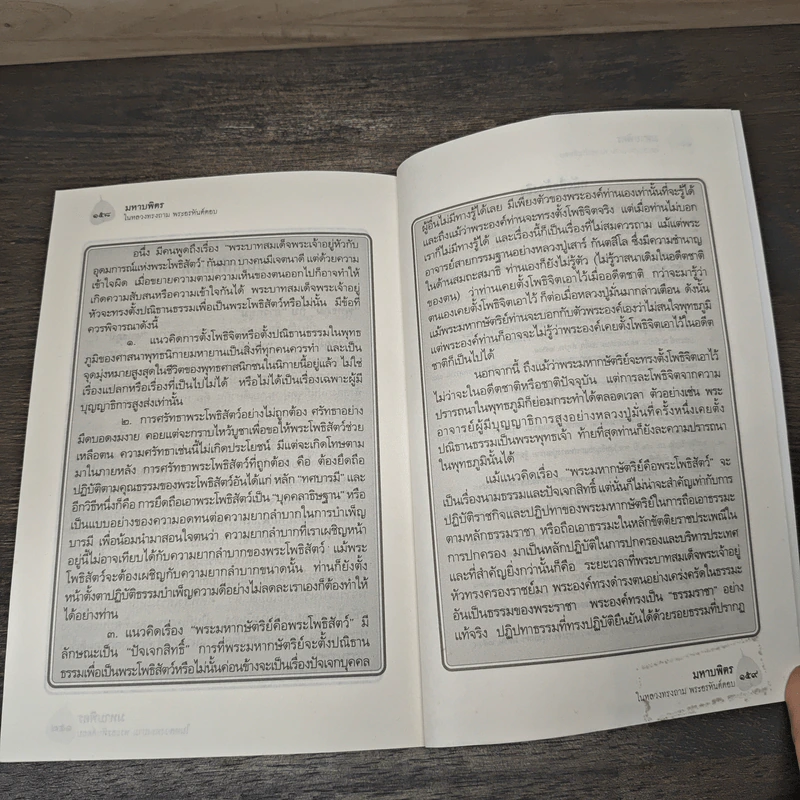 ๑๕๘
มหาบพิตร
ในหลวงทรงถาม พระอรหันต์ตอบ
อนึ่ง มีคนพูดถึงเรื่อง “พระบาทสมเด็จพระเจ้าอยู่หัวกับ
อุดมการณ์แห่งพระโพธิสัตว์” กันมาก บางคนมีเจตนาดี แต่ด้วยความ
เข้าใจผิด เมื่อขยายความตามความเห็นของตนออกไปก็อาจทำให้
เกิดความสับสนหรือความเข้าใจกันได้ พระบาทสมเด็จพระเจ้าอยู่
หัวจะทรงตั้งปณิธานธรรมเพื่อเป็นพระโพธิสัตว์หรือไม่นั้น มีข้อที่
ควรพิจารณาดังนี้
๑. แนวคิดการตั้งโพธิจิตหรือตั้งปณิธานธรรมในพุทธ
ภูมิของศาสนาพุทธนิกายมหายานเป็นสิ่งที่ทุกคนควรทำ และเป็น
จุดมุ่งหมายสูงสุดในชีวิตของพุทธศาสนิกชนในนิกายนี้อยู่แล้ว ไม่ใช่
เรื่องแปลกหรือเรื่องที่เป็นไปไม่ได้ หรือไม่ได้เป็นเรื่องเฉพาะผู้มี
บุญญาธิการสูงส่งเท่านั้น
๒. การศรัทธาพระโพธิสัตว์อย่างไม่ถูกต้อง ศรัทธาอย่าง
มืดบอดงมงาย คอยแต่จะกราบไหว้บูชาเพื่อขอให้พระโพธิสัตว์ช่วย
เหลือตน ความศรัทธาเช่นนี้ไม่เกิดประโยชน์ มีแต่จะเกิดโทษตาม
มาในภายหลัง การศรัทธาพระโพธิสัตว์ที่ถูกต้อง คือ ต้องยึดถือ
ปฏิบัติตามคุณธรรมของพระโพธิสัตว์อันได้แก่ หลัก “ทศบารมี” และ
อีกวิธีหนึ่งก็คือ การยึดถือเอาพระโพธิสัตว์เป็น “บุคคลาธิษฐาน” หรือ
เป็นแบบอย่างของความอดทนต่อความยากลำบากในการบำเพ็ญ
บารมี เพื่อน้อมนำมาสอนใจตนว่า ความยากลำบากที่เราเผชิญหน้า
อยู่นี้ไม่อาจเทียบได้กับความยากลำบากของพระโพธิสัตว์ แม้พระ
โพธิสัตว์จะต้องเผชิญกับความยากลำบากขนาดนั้น ท่านก็ยังตั้ง
หน้าตั้งตาปฏิบัติธรรมบำเพ็ญความดีอย่างไม่ลดละเราเองก็ต้องทำให้
ได้อย่างท่าน
๓. แนวคิดเรื่อง “พระมหากษัตริย์คือพระโพธิสัตว์” มี
ลักษณะเป็น “ปัจเจกสิทธิ์” การที่พระมหากษัตริย์จะตั้งปณิธาน
ธรรมเพื่อเป็นพระโพธิสัตว์หรือไม่นั้นค่อนข้างจะเป็นเรื่องปัจเจกบุคคล
ผู้อื่นไม่มีทางรู้ได้เลย มีเพียงตัวของพระองค์ท่านเองเท่านั้นที่จะรู้ได้
และถึงแม้ว่าพระองค์ท่านจะทรงตั้งโพธิจิตจริง แต่เมื่อท่านไม่บอก
เราก็ไม่มีทางรู้ได้ และเรื่องนี้ก็เป็นเรื่องที่ไม่สมควรถาม แม้แต่พระ
อาจารย์สายกรรมฐานอย่างหลวงปู่เสาร์ กันตสีโล ซึ่งมีความชำนาญ
ในด้านสมถะสมาธิ ท่านเองก็ยังไม่รู้ตัว (ไม่รู้วาสนาเดิมในอดีตชาติ
ของตน) ว่าท่านเคยตั้งโพธิจิตเอาไว้เมื่ออดีตชาติ กว่าจะมารู้ว่า
ตนเองเคยตั้งโพธิจิตเอาไว้ ก็ต่อเมื่อหลวงปู่มั่นมากล่าวเตือน ดังนั้น
แม้พระมหากษัตริย์ท่านจะบอกกับตัวพระองค์เองว่าไม่สนใจพุทธภูมิ
แต่พระองค์ท่านก็อาจจะไม่รู้ว่าพระองค์เคยตั้งโพธิจิตเอาไว้ในอดีต
ชาติก็เป็นไปได้
นอกจากนี้ ถึงแม้ว่าพระมหากษัตริย์จะทรงตั้งโพธิจิตเอาไว้
ไม่ว่าจะในอดีตชาติหรือชาติปัจจุบัน แต่การละโพธิจิตจากความ
ปรารถนาในพุทธภูมิก็ย่อมกระทำได้ตลอดเวลา ตัวอย่างเช่น พระ
อาจารย์ผู้มีบุญญาธิการสูงอย่างหลวงปู่มั่นที่ครั้งหนึ่งเคยตั้ง
ปณิธานธรรมเป็นพระพุทธเจ้า ท้ายที่สุดท่านก็ยังละความปรารถนา
ในพุทธภูมินั้นได้
แม้แนวคิดเรื่อง “พระมหากษัตริย์คือพระโพธิสัตว์” จะ
เป็นเรื่องนามธรรมและปัจเจกสิทธิ์ แต่นั่นก็ไม่น่าจะสำคัญเท่ากับการ
ปฏิบัติราชกิจและปฏิปทาของพระมหากษัตริย์ในการถือเอาธรรมะ
ตามหลักธรรมราชา หรือถือเอาธรรมะในหลักขัตติยราชประเพณีใน
การปกครอง มาเป็นหลักปฏิบัติในการปกครองและบริหารประเทศ
และที่สำคัญยิ่งกว่านั้นก็คือ ระยะเวลาที่พระบาทสมเด็จพระเจ้าอยู่
หัวทรงครองราชย์มา พระองค์ทรงดำรงตนอย่างเคร่งครัดในธรรมะ
อันเป็นธรรมของพระราชา พระองค์ทรงเป็น “ธรรมราชา” อย่าง
แท้จริง ปฏิปทาธรรมที่ทรงปฏิบัติยืนยันได้ด้วยรอยธรรมที่ปรากฏ
มหาบพิตร
ในหลวงทรงถาม พระอรหันต์ตอบ
๑๕๙